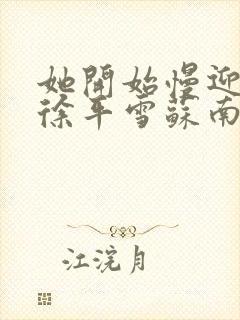 她開始慢迎
徐平雪蘇南
江浣月